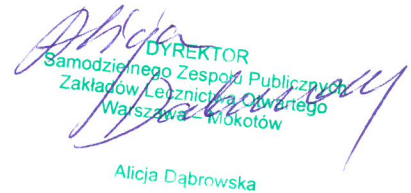 DYREKTOR
Samodzielnego Zespołu Publicznych
Zakładów Lecznictwa Otwartego
Warszawa – Mokotów
Alicja Dąbrowska
Alicja Dąbrowska